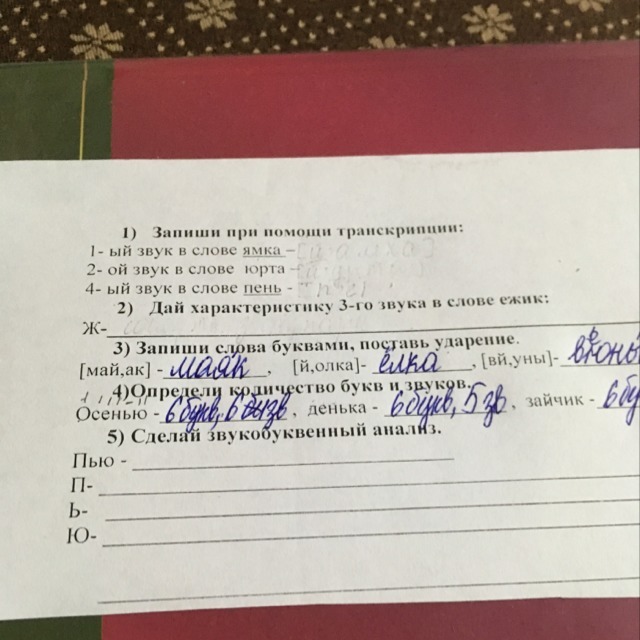 1) Запиши при помощи транскрипции:
1- ый звук в слове ямка –
2- ой звук в слове юрта –
4- ый звук в слове пень -
2) Дай характеристику 3-го звука в слове ежик:
Ж-
3) Запиши слова буквами, поставь ударение.
[май,ак] - маяк, [й,олка]- ёлка, [вй,уны]-
4)Определи количество букв и звуков.
Осенью - 6 букв, 6 зв, денька - 6 букв, 5 зв, зайчик - 6 бу
5) Сделай звукобуквенный анализ.
Пью -
П-
Ь-
Ю-